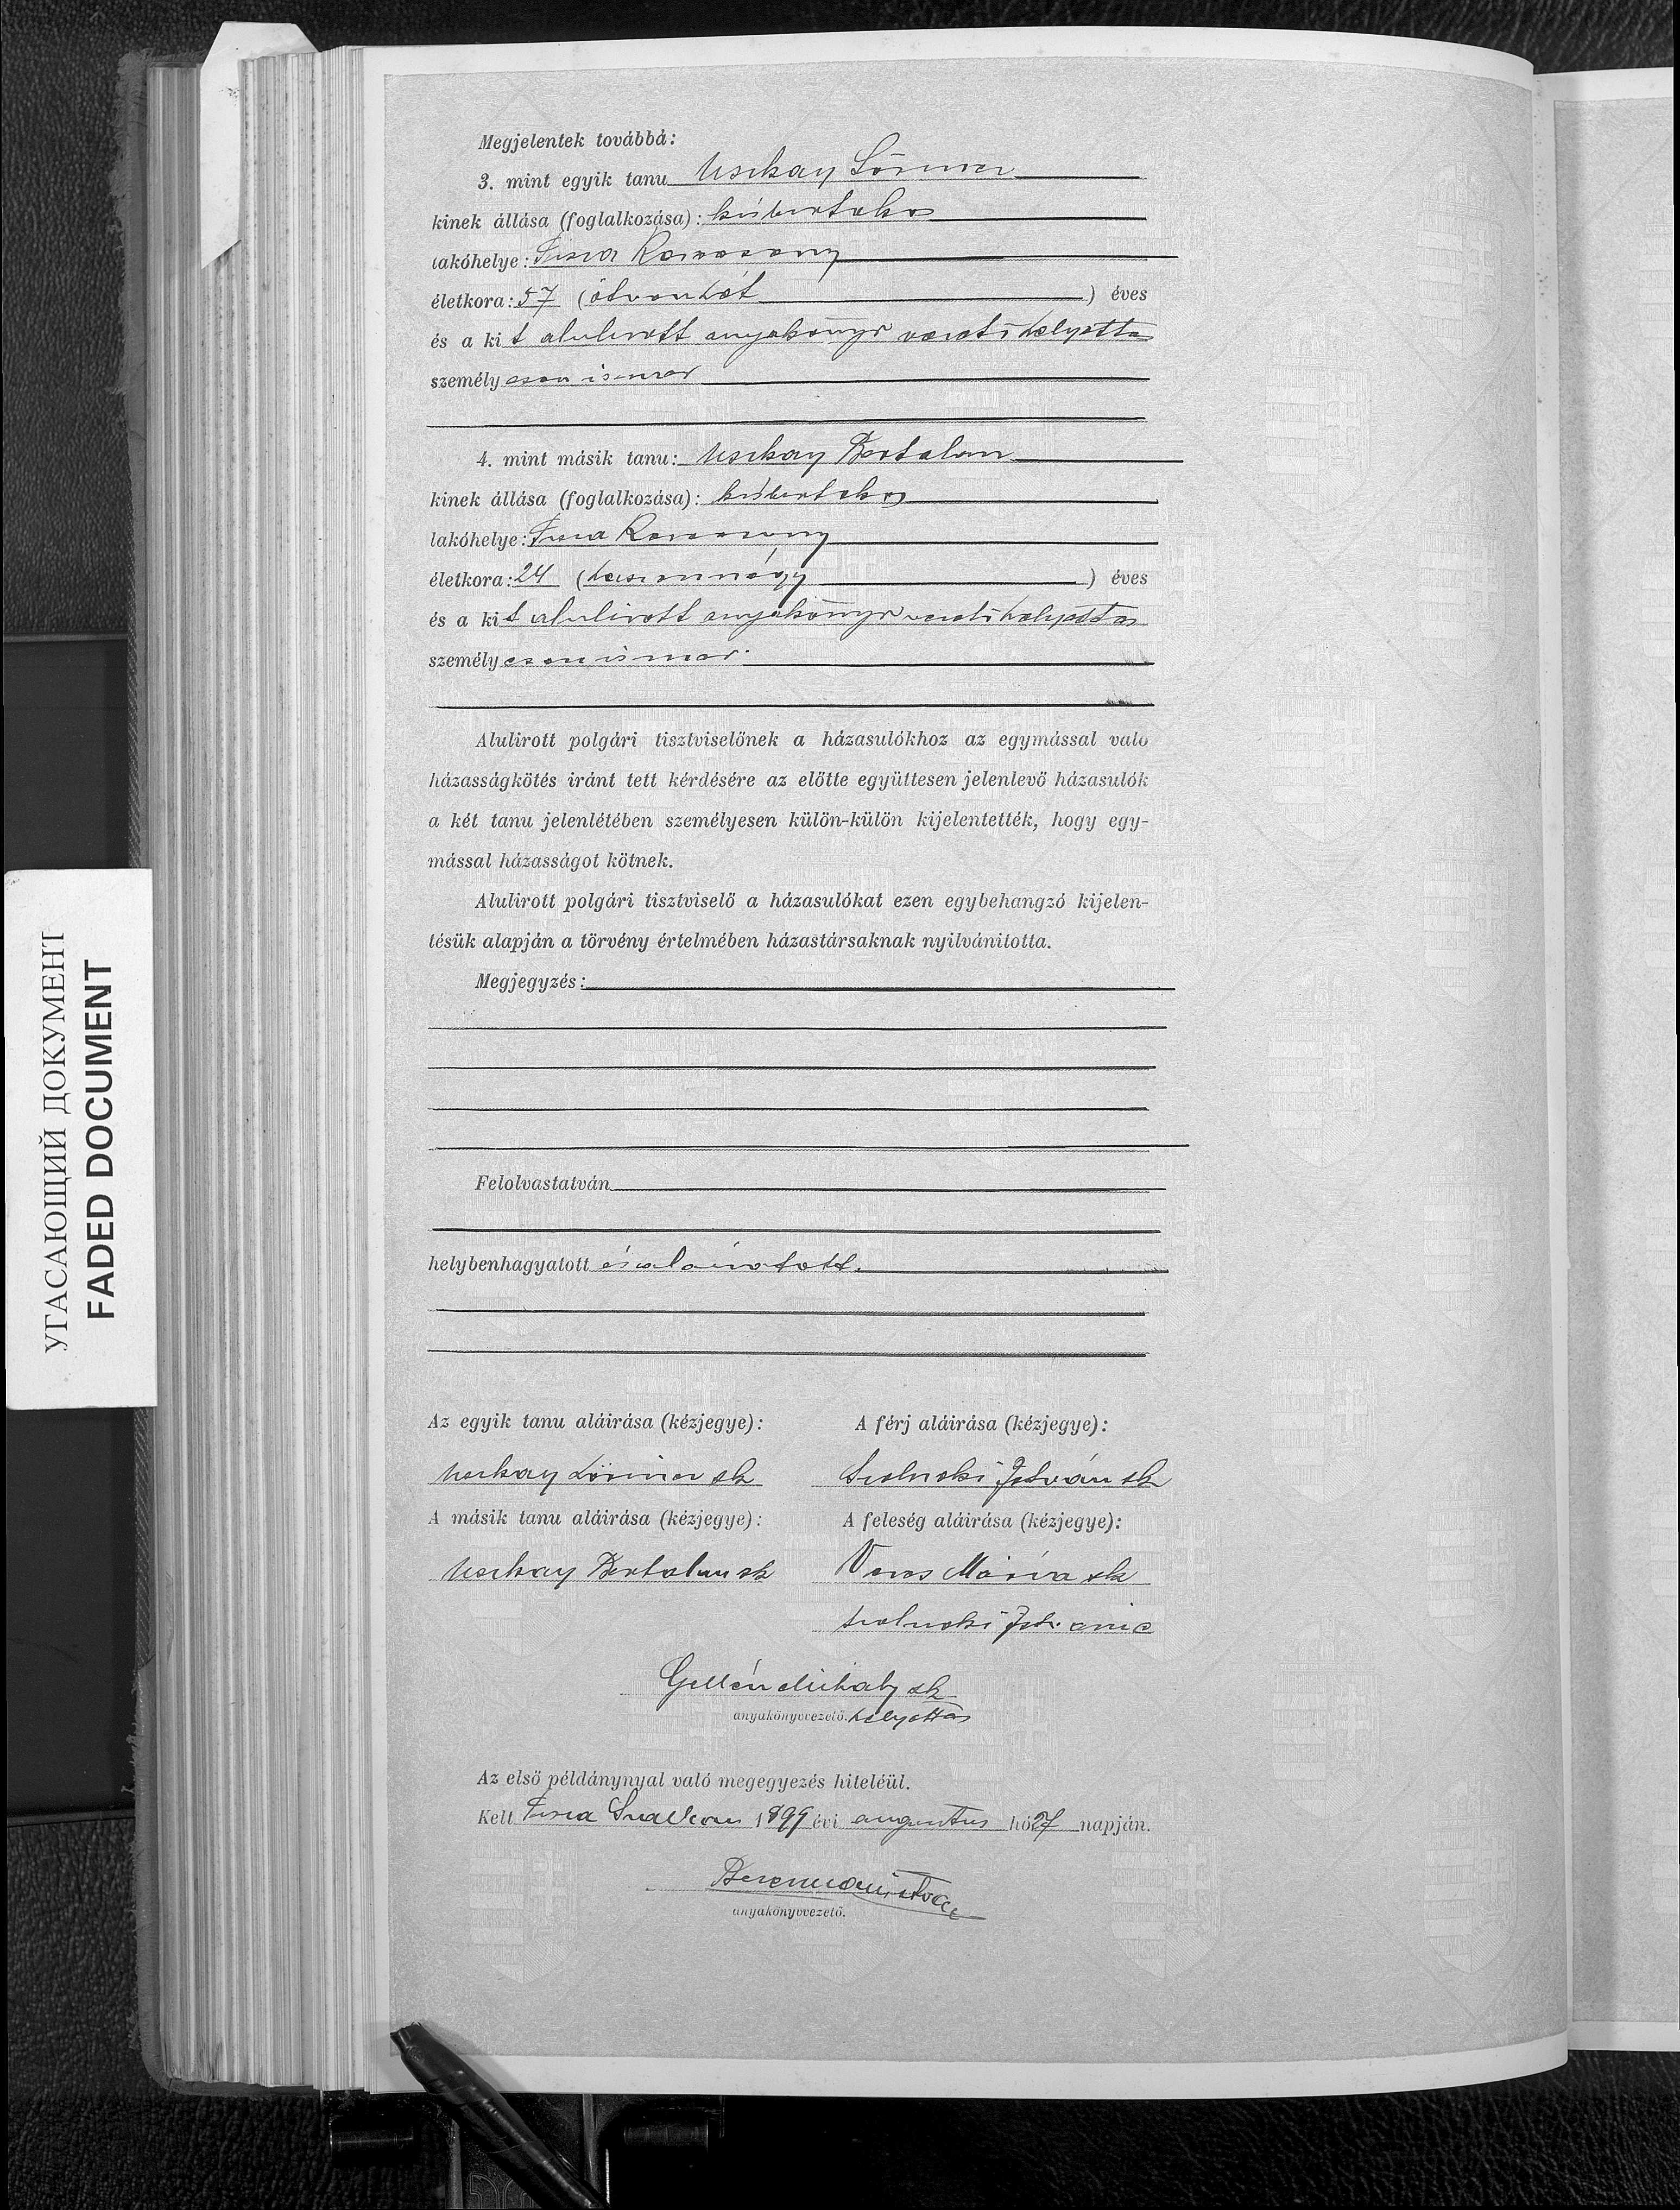 Megjelentek továbbá:
3. mint egyik tanu Uszkay Lőrincz
kinek állása (foglalkozása): kisbirtokos
lakóhelye: Tisza
életkora: 57 (ötvenhét) éves
és a kit alulirott anyakönyvvezető helyettes
személyesen ismer
4. mint másik tanu: Uszkay Bertalan
kinek állása (foglalkozása): kisbirtokos
lakóhelye: Tisza
életkora: 24 (huszonnégy) éves
és a kit alulirott anyakönyvvezető helyettes
személyesen ismer.
Alulirott polgári tisztviselőnek a házasulókhoz az egymással való
házasságkötés iránt tett kérdésére az előtte együttesen jelenlevő házasulók
a két tanu jelenlétében személyesen külön-külön kijelentették, hogy egy-
mással házasságot kötnek.
Alulirott polgári tisztviselő a házasulókat ezen egybehangzó kijelen-
tésük alapján a törvény értelmében házastársaknak nyilvánitotta.
Megjegyzés:
Felolvastatván
helybenhagyatott és aláiratott.
Az egyik tanu aláirása (kézjegye): A férj aláirása (kézjegye):
Uszkay Lőrincz sk Szolnoki István sk
A másik tanu aláirása (kézjegye): A feleség aláirása (kézjegye):
Uszkay Bertalan sk Veres Mária sk
Szolnoki
Gellén Mihály sk
anyakönyvvezető. helyettes
Az első példánynyal való megegyezés hiteléül.
Kelt Tisza 1899 évi augusztus hó 27 napján.
anyakönyvvezető.
УГАСАЮЩИЙ ДОКУМЕНТ
FADED DOCUMENT